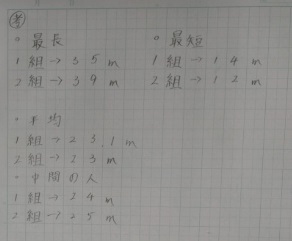 考
○ 最長
1組→35m
2組→39m
○ 最短
1組→14m
2組→12m
○ 平均
1組→23.1m
2組→23m
○ 中間の人
1組→24m
2組→25m